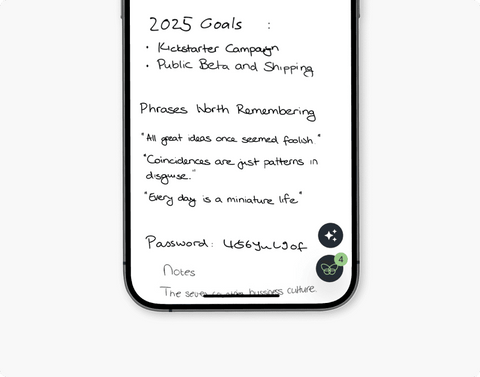 2025 Goals :
• Kickstarter Campaign
• Public Beta and Shipping
Phrases Worth Remembering
"All great ideas once seemed foolish"
"Coincidences are just patterns in
disguise."
"Every day is a miniature life"
Password:
Notes
4
The business culture.